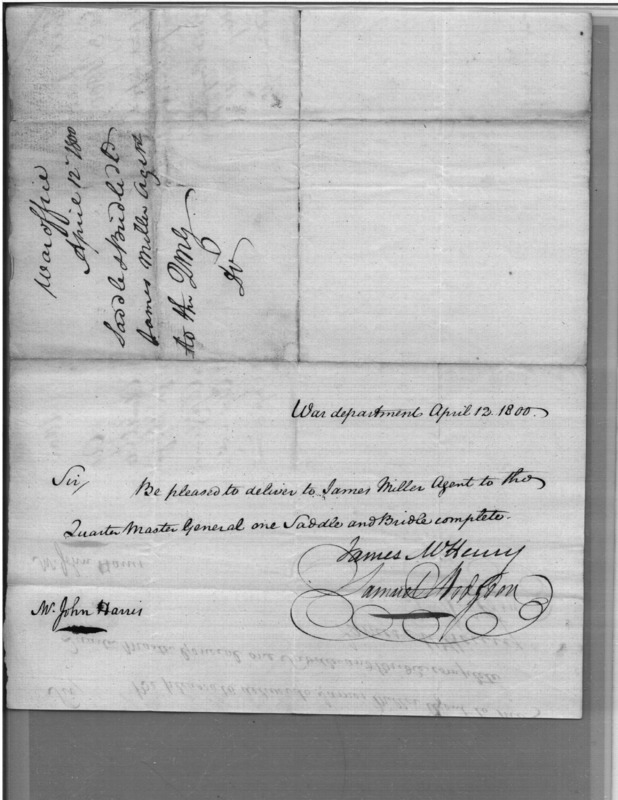 War office
April 12th 1800
Saddle & Bridle to
James Miller Agent
to the QMG
War department April 12. 1800.
Sir,
Be pleased to deliver to James Miller Agent to the
Quarter Master General one Saddle and Bridle complete.
James McHenry
Samuel Hodgdon
Mr. John Harris